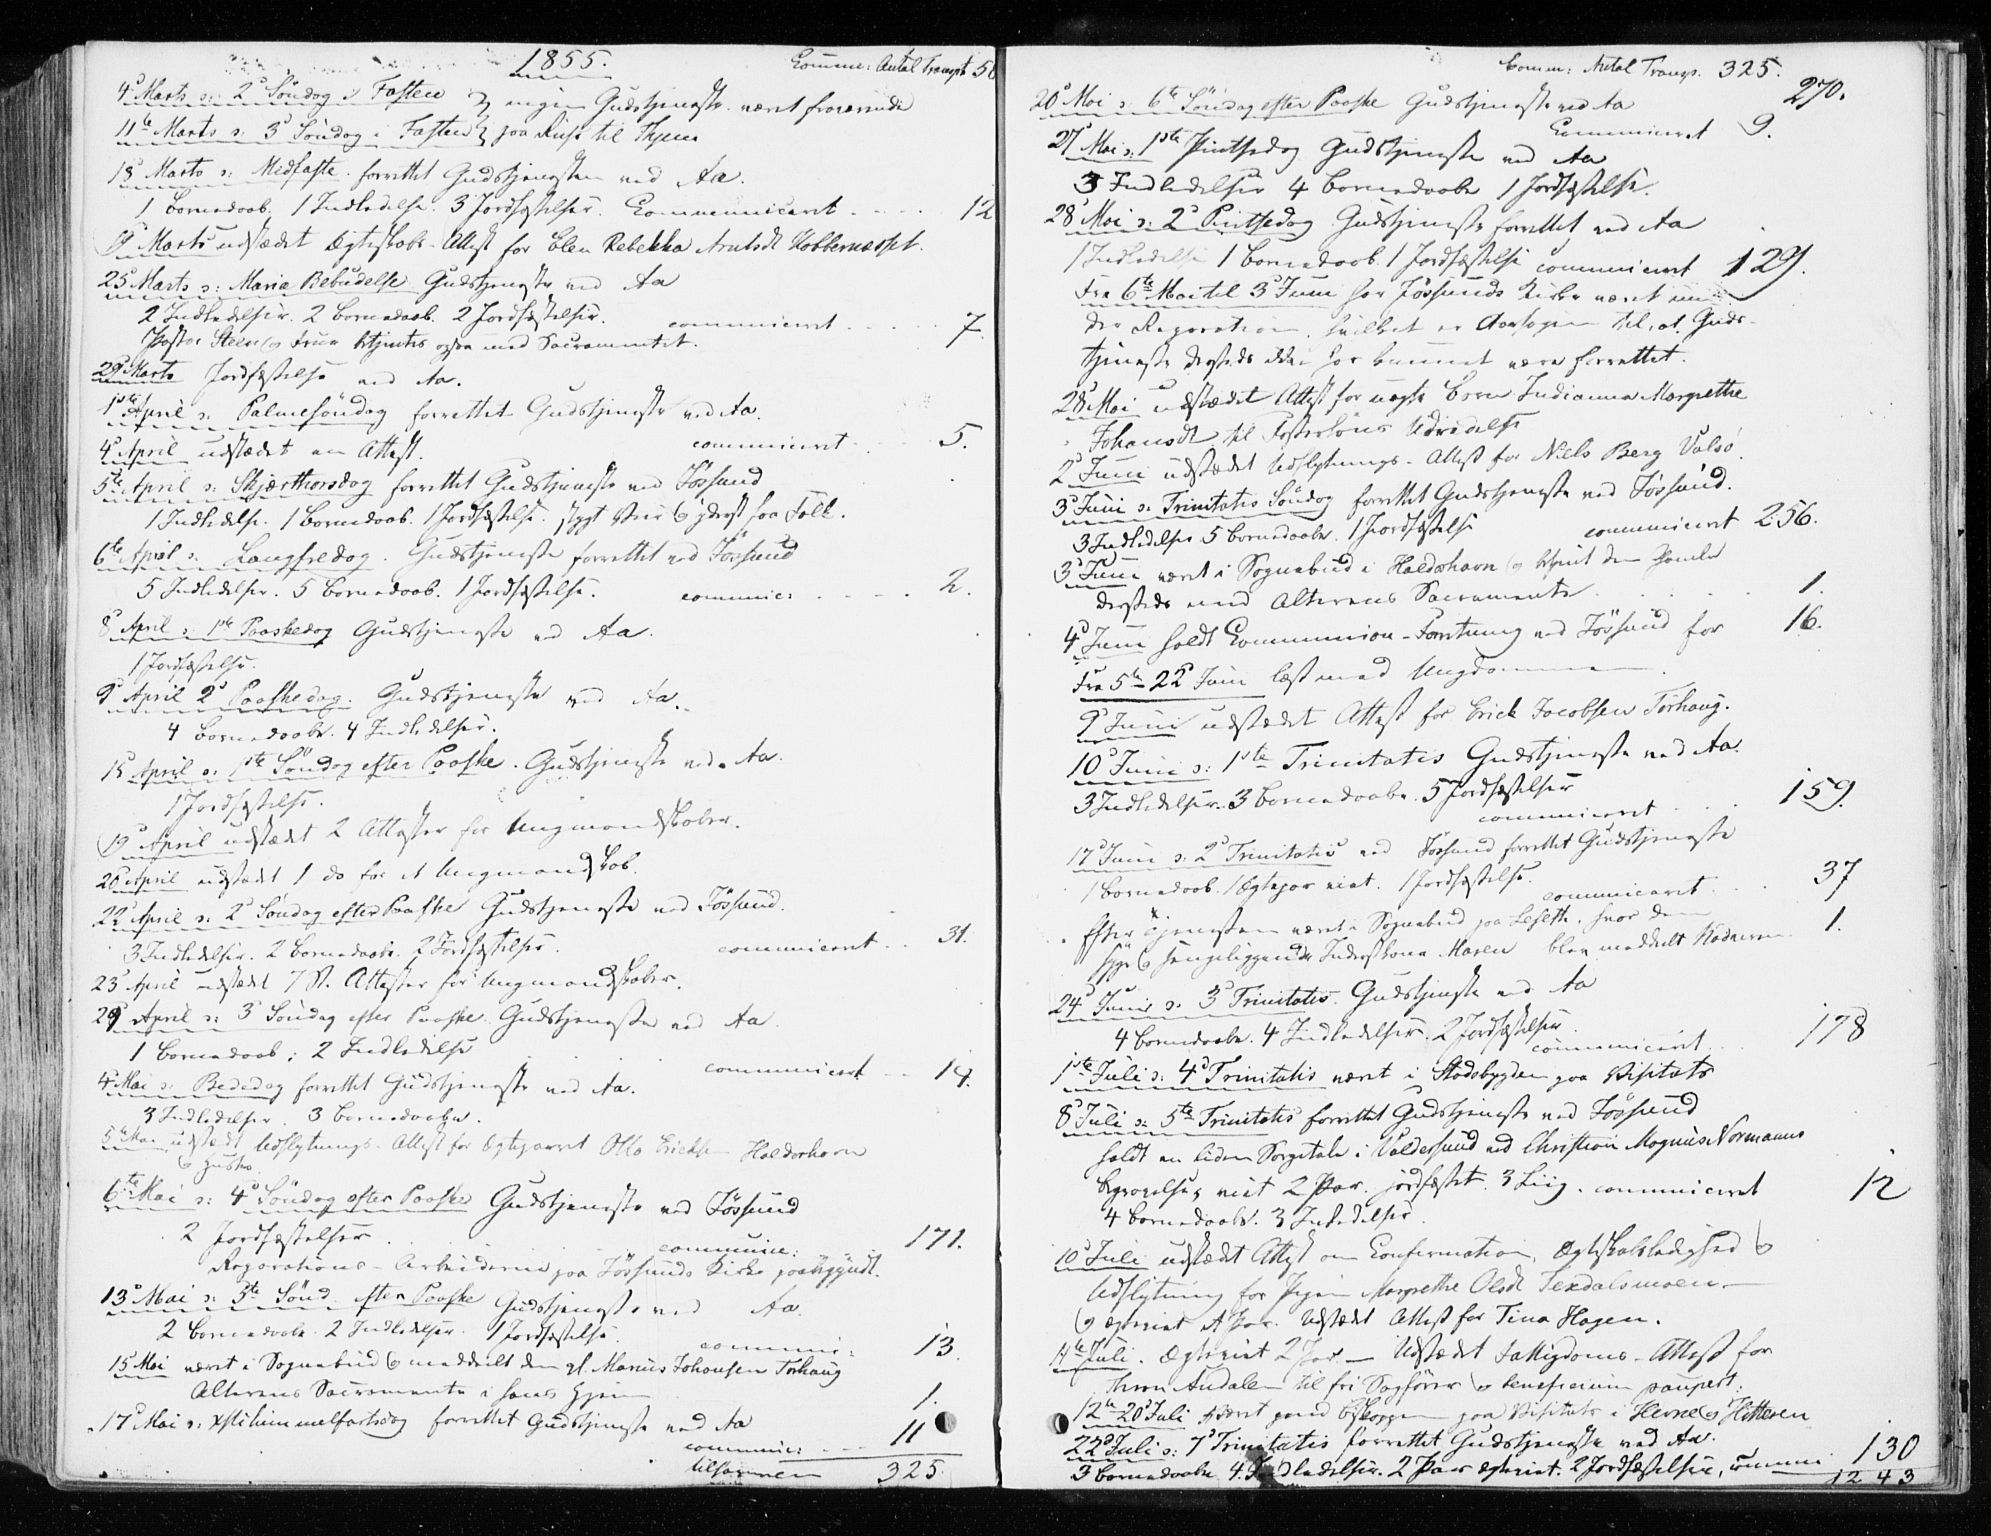 1855. Commu: Antal Transpt 58
4de Marts s: 2den Söndag i Fasten } ingen Gudstjeneste været fraværende
11te Marts s: 3de Söndag i Fasten } paa Reise til Thjem
18de Marts s: Midfaste forrettet Gudstjenesten ved Aa.
1 Barnedaab. 1 Indledelse. 3 Jordfæstelser. Communiceret 12
19de Marts udstædet Ægteskabs-Attest for Elen Rebekka Arntsdt Kobbernæsset.
25 Marts s: Maria Bebudelse Gudstjeneste ved Aa
2 Indledelser. 2 Barnedaab. 2 Jordfæstelser. communiceret 7.
Pastor Steen og Frue betjentes ogsaa med Sacramentet.
29de Marts Jordfæstelse ved Aa.
1ste April s: Palmesöndag forrettet Gudstjeneste ved Aa.
4de April udstædet en Attest. communiceret 5.
5te April s: Skjærthorsdag forrettet Gudstjeneste ved Jössund
1 Indledelse. 1 Barnedaab. 1 Jordfæstelse. stygt Veir og yderst faa Folk.
6te April s: Langfredag. Gudstjeneste forrettet ved Jössund
5 Indledelser. 5 Barnedaab. 1 Jordfæstelse. communic: 2.
8de April s: 1ste Paaskedag Gudstjeneste ved Aa.
1 Jordfæstelse.
9de April 2den Paaskedag. Gudstjeneste ved Aa.
4 Barnedaabe. 4 Indledelser.
15 April s: 1ste Söndag efter Paaske. Gudstjeneste ved Aa.
1 Jordfæstelse.
19de April udstædt 2 Attester for Ungmandskaber.
20 April udstædt 1 do for et Ungmandskab.
22de April s: 2den Söndag efter Paaske Gudstjeneste ved Jössund.
3 Indledelser. 2 Barnedaabe. 2 Jordfæstelser. communiceret 31.
23 April udstædt 7 St. Attester for Ungmandskaber.
29 April s: 3de Söndag efter Paaske Gudstjeneste ved Aa.
1 Barnedaab; 2 Indledelse communiceret 14.
4de Mai s: Bededag forrettet Gudstjeneste ved Aa.
3 Indledelser. 3 Barnedaaber.
5te Mai udstædt Udflytnings-Attest for Ægteparret Otto Ericksen Haldorhavn
og Hustro
6te Mai s: 4de Söndag efter Paaske Gudstjeneste ved Jössund
2 Jordfæstelser. communic: 171.
Reparations-Arbeiderne paa Jössunds Kirke paabegyndt.
13de Mai s: 5te Sönd. efter Paaske Gudstjeneste ved Aa
2 Barnedaabe. 2 Indledelser. 1 Jordfæstelse. communi: 13.
15 Mai været i Sognebud og meddeelt den gl. Marius Johansen Torhaug
Alterens Sacramente i hans Hjem 1.
17de Mai s: Xsti himmelfartsdag forrettet Gudstjeneste ved Aa
communic: 11
tilsammen 325.
Comm: Antal Transp. 325.
270.
20de Mai s: 6te Söndag efter Paaske Gudstjeneste ved Aa
Communiceret 9.
27 Mai s: 1ste Pintsedag Gudstjeneste ved Aa
3 Indledelser 4 Barnedaabe 1 Jordfæstelse.
28de Mai s: 2den Pintsedag Gudstjeneste forrettet ved Aa
1 Indledelse 1 Barnedaab. 1 Jordfæstelse communiceret 129.
Fra 6te Mai til 3de Juni har Jössunds Kirke været un-
der Reparation, hvilket er Aarsagen til, at Guds-
tjeneste dersteds ikke har kunnet være forrettet.
28de Mai udstædet Attest for uægte Barn Indianna Margrethe
Johansdt til Fosterlöns Udredelse
2den Juni udstædet Udflytnings-Attest for Niels Berg Valsö.
3de Juni s: Trinitatis Söndag forrettet Gudstjeneste ved Jössund.
3 Indledelser 5 Barnedaabe. 1 Jordfæstelse communiceret 256.
3de Juni været i Sognebud i Haldorhavn og betjent den Gamle
dersteds med Alterens Sacramente 1.
4de Juni holdt Communion-Forretning ved Jössund for 16.
Fra 5te-22de Juni læst med Ungdommen
9de Juni udstædet Attest for Erick Jacobsen Torhaug.
10de Juni s: 1ste Trinitatis Gudstjeneste ved Aa.
3 Indledelser. 3 Barnedaabe. 5 Jordfæstelser
communiceret 159.
17de Juni s: 2den Trinitatis ved Jössund forrettet Gudstjeneste
1 Barnedaab. 1 Ægtepar viet. 1 Jordfæstelse.
communiceret 37
Efter Tjenesten været i Sognebud paa Selsette, hvor den
syge og sengeliggende Inderstkone Maren blev meddelt Nadveren 1.
24 Juni s: 3de Trinitatis. Gudstjeneste ved Aa
4 Barnedaabe. 4 Indledelser. 2 Jordfæstelser.
communiceret 178
1ste Juli s: 4de Trinitatis været i Stadsbygden paa Visitats
8de Juli s: 5te Trinitatis forrettet Gudstjeneste ved Jössund
holdt en liden Sörgetale i Valdersund ved Christian Magnus Normanns
Begravelse; viet 2 Par. jordfæstet 3 Liig. communiceret 12
4 Barnedaabe. 3 Indledelser.
10de Juli udstædet Attest om Confirmation, Ægteskabsledighed og
Udflytning for Pigen Margrethe Olsdt Texdalsmoen.
og ægteviet et Par. Udstædt Attest for Tina Hagen.
11te Juli. Ægteviet 2 Par. — Udstædet Fattigdoms-Attest for
Thron Audalen til fri Sagförer og beneficium paupert.
12te-20de Juli været paa Visitats i Hevne og Hitteren
22de Juli s: 7de Trinitatis forrettet Gudstjeneste ved Aa.
3 Barnedaabe. 4 Indledelser. 2 Par ægteviet. 2 Jordfæstelser, commun 130
1243